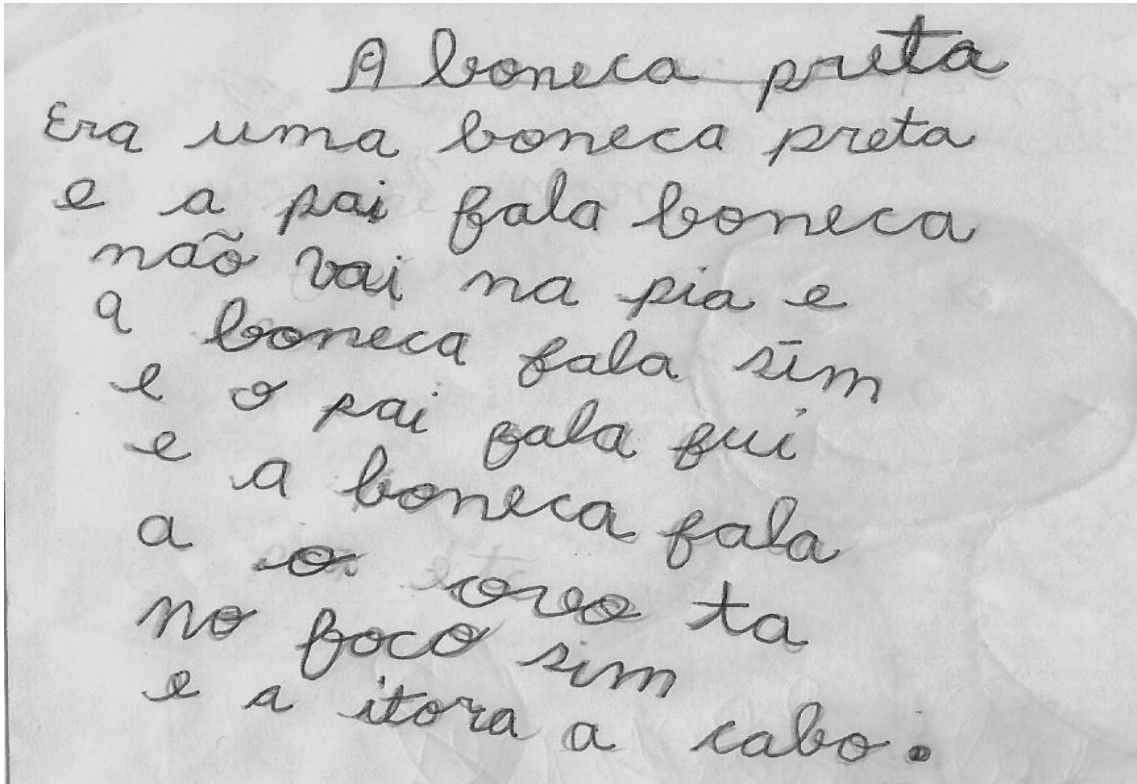 A boneca preta
Era uma boneca preta
e a pai fala boneca
não vai na pia e
a boneca fala sim
e o pai fala fui
e a boneca fala
a o ovo ta
no foco sim
e a itora a cabo.